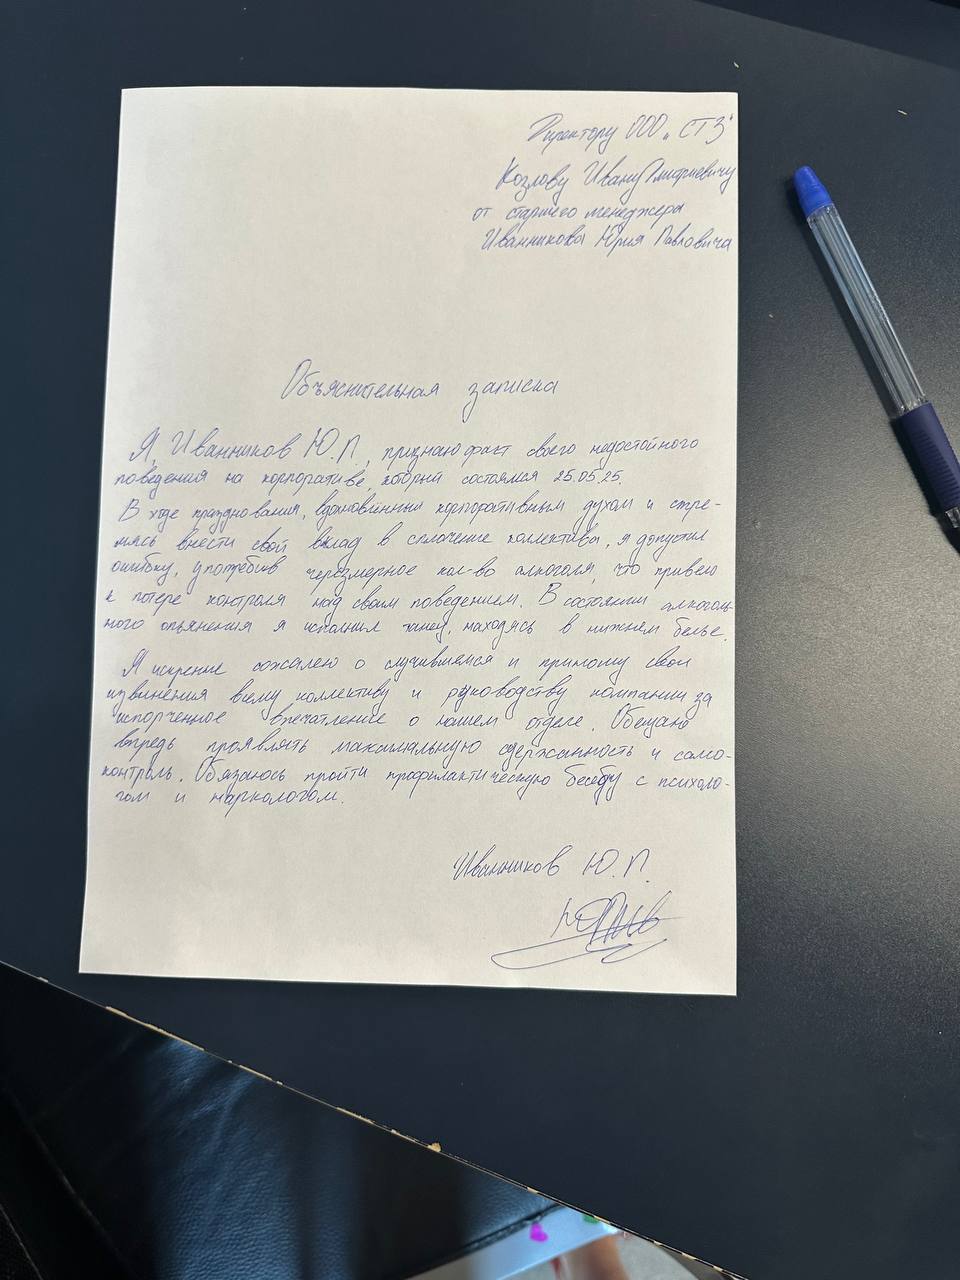 Директору ООО „СТЗ“
Козлову Ивану Дмитриевичу
от старшего менеджера
Иванникова Юрия Павловича
Объяснительная записка
Я, Иванников Ю.П., признаю факт своего недостойного
поведения на корпоративе, который состоялся 25.05.25.
В ходе празднования, вдохновлённый корпоративным духом и стре-
мясь внести свой вклад в сплочение коллектива, я допустил
ошибку, употребив черезмерное кол-во алкоголя, что привело
к потере контроля над своим поведением. В состоянии алкоголь-
ного опьянения я исполнил танец, находясь в нижнем белье.
Я искренне сожалею о случившемся и приношу свои
извинения всему коллективу и руководству компании за
испорченное впечатление о нашем отделе. Обещаю
впредь проявлять максимальную сдержанность и само-
контроль. Обязаюсь пройти профилактическую беседу с психоло-
гом и наркологом.
Иванников Ю.П.